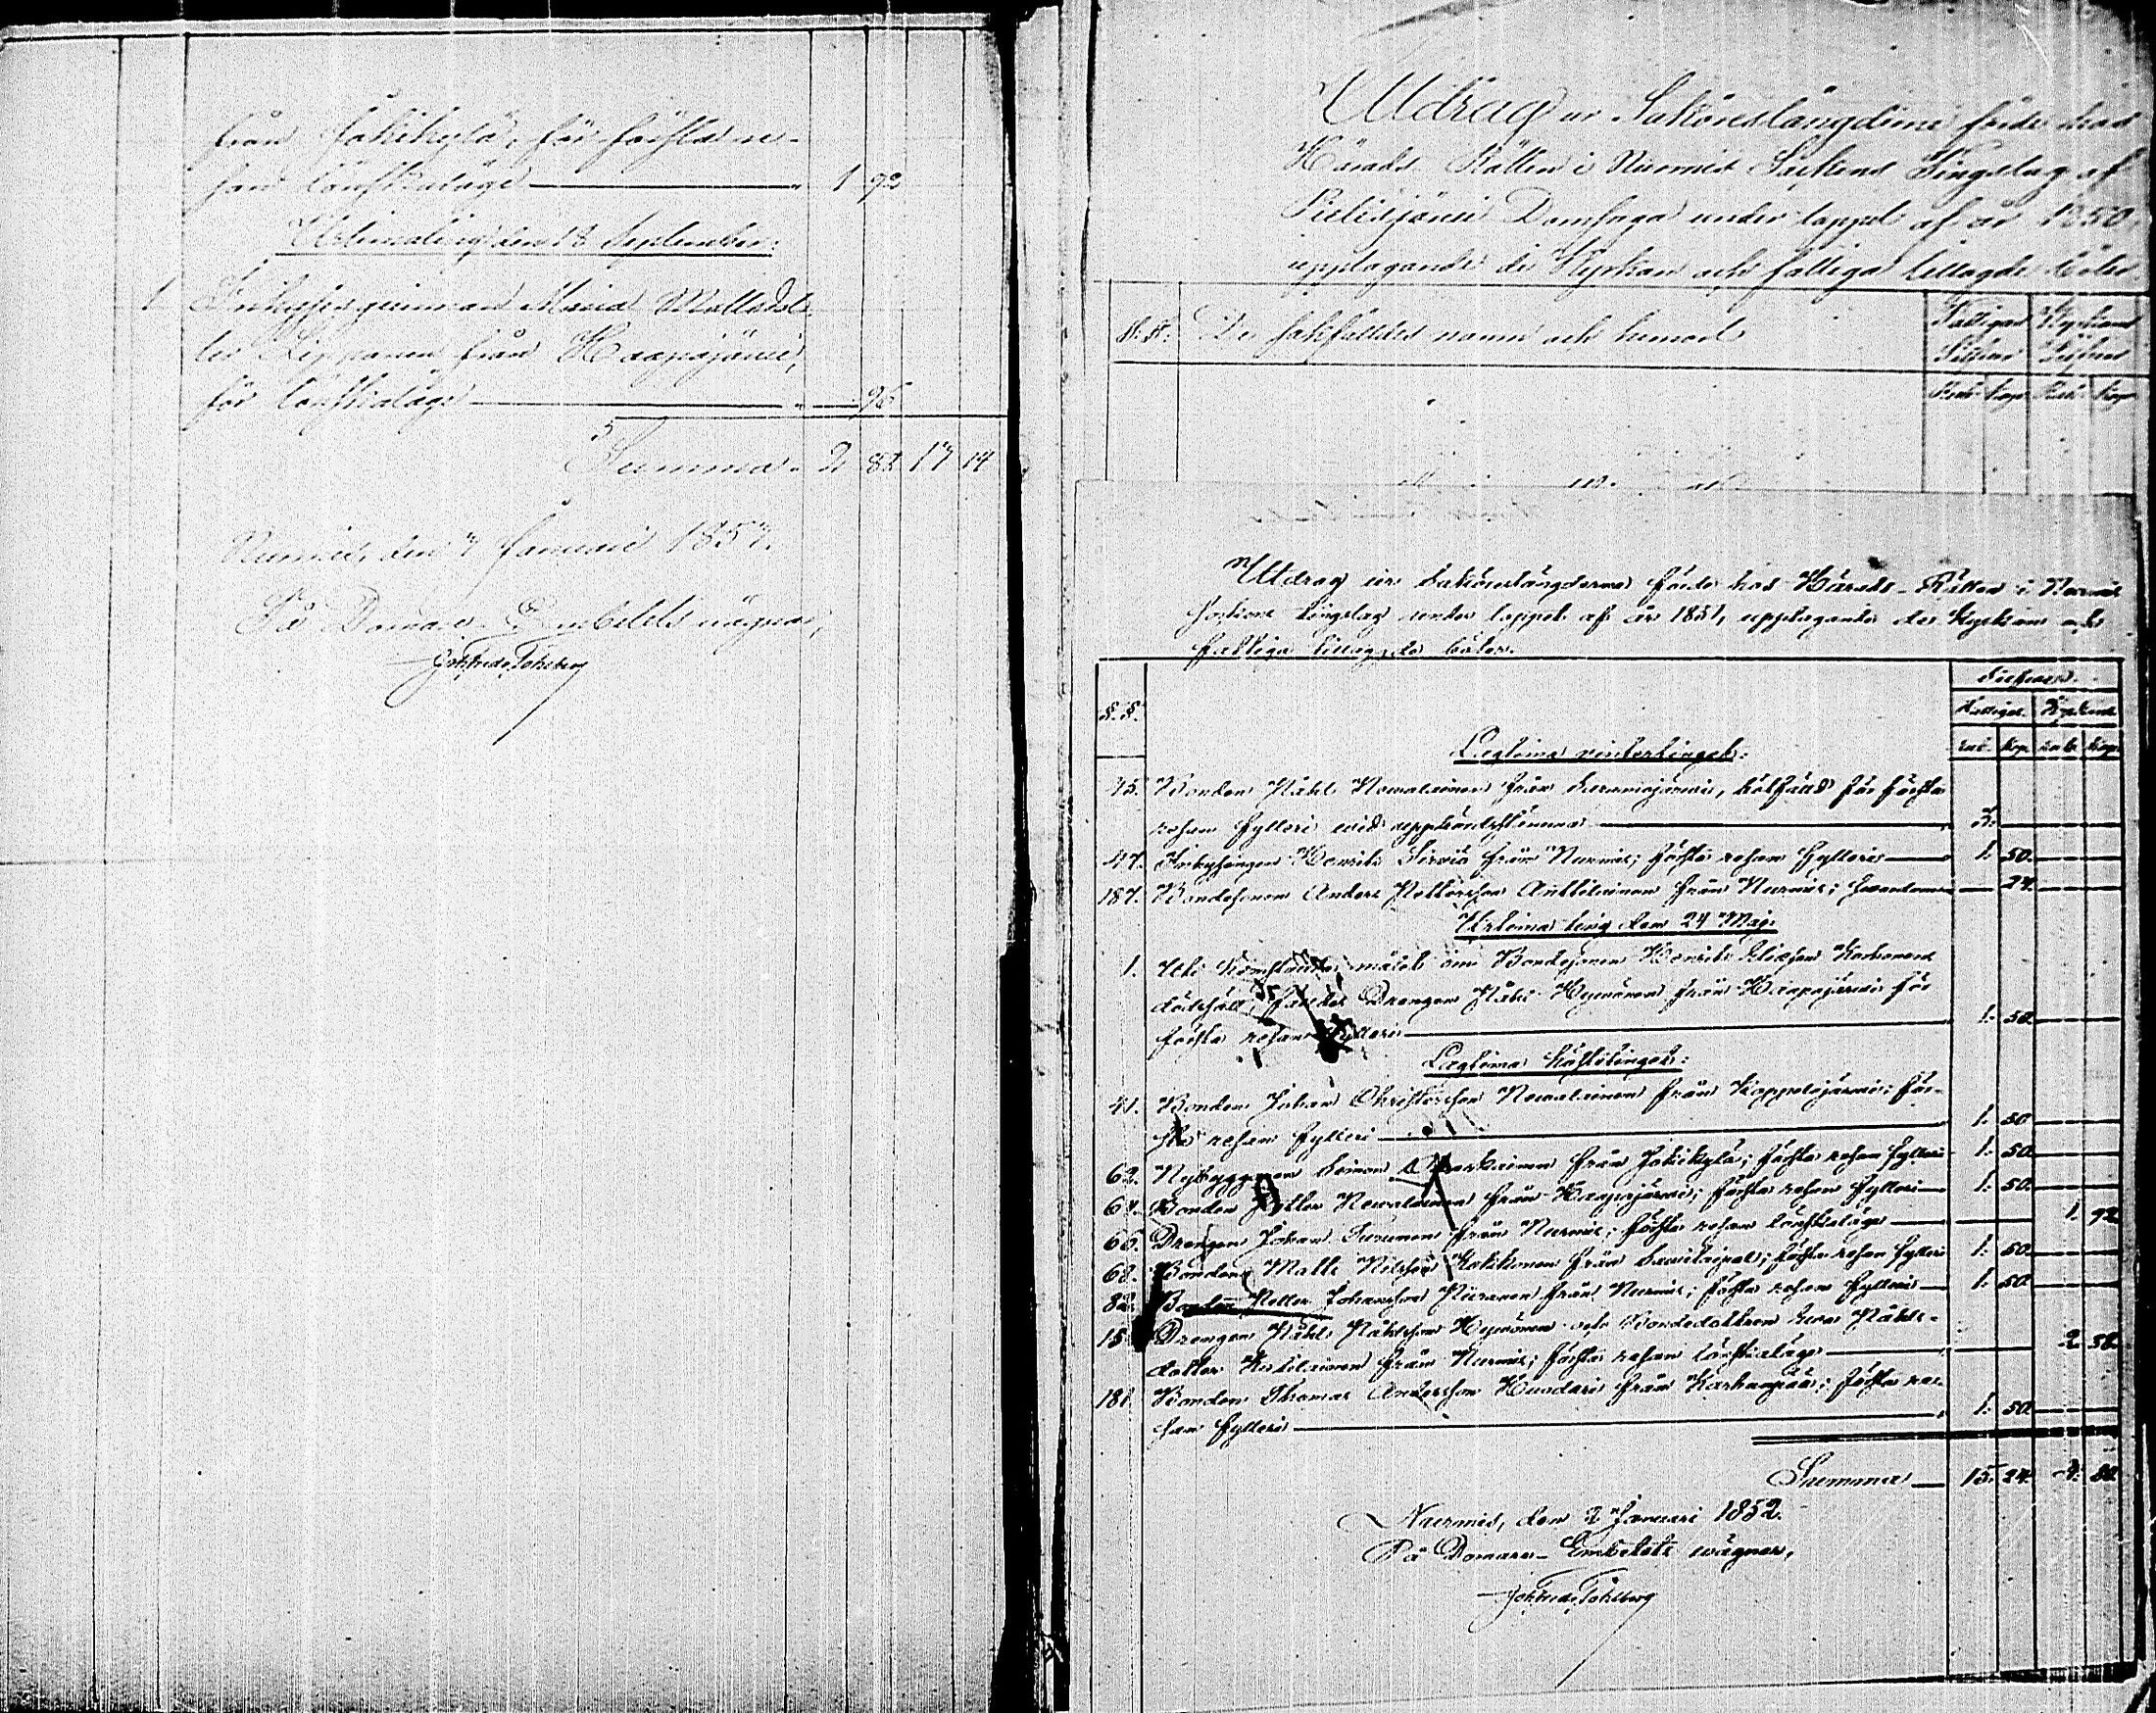 från Jokikylä, för första re-
san lönskaläge — " 1 92
Urtimating den 18 September:
1 Inhysesqvinnan Maria Mattsdot-
ter Lipponen från Haapajärvi,
för lönskaläge — " — 96
Summa " 2 82 17 14
Nurmis, den 7 Januari 1857.
På Domare-Embetets vägnar,
Joh. Fredr. Tohlberg
Utdrag ur Saköreslängderne förde hos
Härads Rätten i Nurmis Sockens Tingslag af
Pielisjärvi Domsaga under loppet af år 1850,
upptagande de Kyrkan och fattiga tillagde böter.
§.§. De sakfälldes namn och hemort
Fattigas Kyrkans
Silfver Silfver
Rub. Kop. Rub. Kop.
Utdrag ur Saköreslängderna förde hos Härads-Rätten i Nurmis
Sockens tingslag under loppet af år 1851, upptagande de Kyrkan och
fattiga tillagda böter.
Silfver.
§.§. Fattigas. Kyrkans
Rub. Kop. Rub. Kop.
Lagtima vintertinget:
45. Bonden Påhl Nevalainen från Saramojärvi, bötfälld för första
resan fylleri vid uppbördsstämma — 3. —
47. Inhysingen Henrik Sirviö från Nurmis; första resan fylleri — 1. 50. —
187. Bondesonen Anders Pettersson Anttilainen från Nurmis; — 24. —
Urtima ting den 24 Maj.
1. Uti målet om Bondesonen Henrik Eliasson Korhonens
dödssätt, fäldes Drengen Påhl Heiskanen från Haapajärvi för
första resan fylleri — 1. 50. —
Lagtima hösttinget:
41. Bonden Johan Christersson Nevalainen från Koppelojärvi; för-
sta resan fylleri — 1. 50. —
62. Nybyggaren Simon från Jokikylä; första resan fylleri 1. 50. —
64. Bonden Petter Nevalainen från Haapajärvi; första resan fylleri — 1. 50. —
66. Drengen Johan Turunen från Nurmis; första resan lönskaläge — 1. 92
68. Bonden Matts Nilsson från Savikylä; första resan fylleri 1. 50. —
82. Bonden Petter Johansson Piironen från Nurmis; första resan fylleri — 1. 50. —
15 Drengen Påhl Påhlsson och Bondedottren Påhls-
dotter från Nurmis; första resan lönskaläge — 2. 88.
181 Bonden Thomas Andersson Huovari från Karhunpää; första re-
san fylleri — 1. 50. —
Summa — 15. 24. 4. 80.
Nurmis, den 2 Januari 1852.
På Domare-Embetets vägnar,
Joh. Fredr. Tohlberg